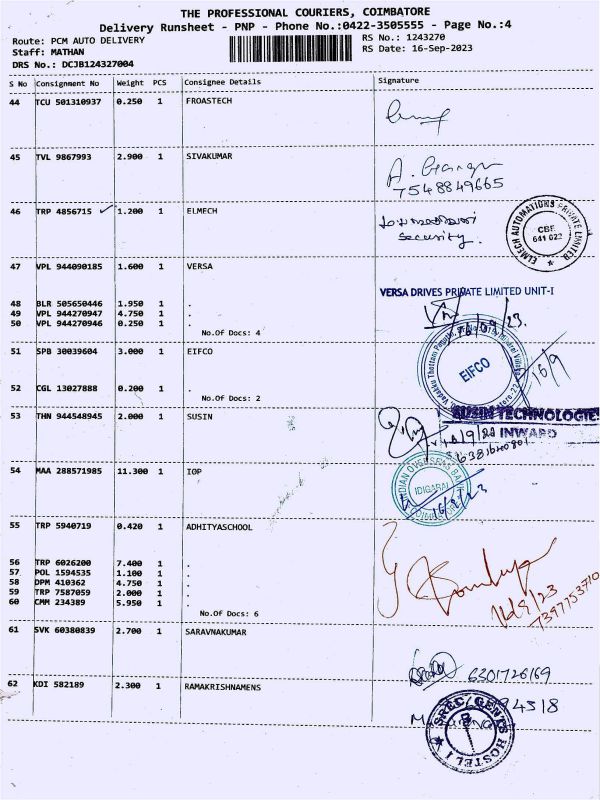 THE PROFESSIONAL COURIERS, COIMBATORE
Delivery Runsheet - PNP - Phone No.:0422-3505555 - Page No.:4
Route: PCM AUTO DELIVERY
Staff: MATHAN
DRS No.: DCJB124327004
RS No.: 1243270
RS Date: 16-Sep-2023
S No Consignment No Weight PCS Consignee Details Signature
44 TCU 501310937 0.250 1 FROASTECH
45 TVL 9867993 2.900 1 SIVAKUMAR
7548849665
46 TRP 4856715 1.200 1 ELMECH
Security.
ELMECH AUTOMATIONS PRIVATE LIMITED
CBE
641 022
47 VPL 944090185 1.600 1 VERSA
VERSA DRIVES PRIVATE LIMITED UNIT-I
48 BLR 505650446 1.950 1 .
49 VPL 944270947 4.750 1 .
50 VPL 944270946 0.250 1 .
No.Of Docs: 4
51 SPB 30039604 3.000 1 EIFCO
EIFCO
16/9
52 CGL 13027888 0.200 1 .
No.Of Docs: 2
53 THN 944548945 2.000 1 SUSIN
SUSIN TECHNOLOGIES
INWARD
54 MAA 288571985 11.300 1 IOP
INDIAN OVERSEAS BANK
IDIGARAI
55 TRP 5940719 0.420 1 ADHITYASCHOOL
56 TRP 6026200 7.400 1 .
57 POL 1594535 1.100 1 .
58 DPM 410362 4.750 1 .
59 TRP 7587059 2.000 1 .
60 CMM 234389 5.950 1 .
No.Of Docs: 6
61 SVK 60380839 2.700 1 SARAVNAKUMAR
6301726169
62 KDI 582189 2.300 1 RAMAKRISHNAMENS
94318
SREC GENTS HOSTEL